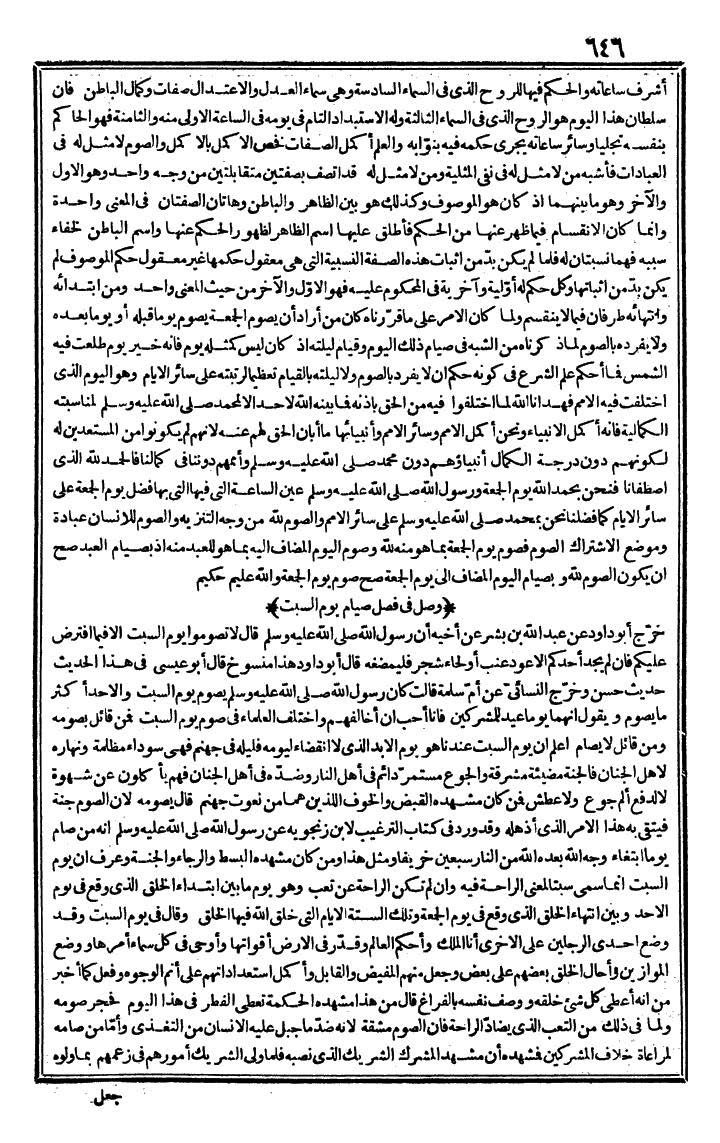 ٦٤٦
أشرف ساعاته والحكم فيها للروح الذى فى السماء السادسة وهى سماء العدل والاعتدال صفات وكمال الباطن فان
سلطان هذا اليوم هو الروح الذى فى السماء الثالثة وله الاستبداد التام فى يومه فى الساعة الاولى منه والثامنة فهو الحاكم
بنفسه تجليا وسائر ساعاته يجرى حكمه فيه بنوّابه والعلم أكمل الصفات نخص الاكمل بالاكمل والصوم لامثل له فى
العبادات فأشبه من لامثل له فى نفى المثلية ومن لامثل له قد اتصف بصفتين متقابلتين من وجه واحد وهو الاول
والآخر وهو ما بينهما اذ كان هو الموصوف وكذلك هو بين الظاهر والباطن وهاتان الصفتان فى المعنى واحدة
وانما كان الانقسام فيما ظهر عنها من الحكم فأطلق عليها اسم الظاهر لظهور الحكم عنها واسم الباطن لخفاء
سببه فهما نسبتان له فلما لم يكن بدّ من اثبات هذه الصفة النسبية التى هى معقول حكمها غير معقول حكم الموصوف لم
يكن بدّ من اثباتها وكل حكم له أوّلية وآخرية فى المحكوم عليه فهو الاوّل والآخر من حيث المعنى واحد ومن ابتدائه
وانتهائه طرفان فيما لا ينقسم ولما كان الامر على ما قرّرناه كان من أراد أن يصوم الجمعة يصوم يوما قبله أو يوما بعده
ولا يفرده بالصوم لما ذكرناه من الشبه فى صيام ذلك اليوم وقيام ليلته اذ كان ليس كمثله يوم فانه خير يوم طلعت فيه
الشمس فما أحكم علم الشرع فى كونه حكم ان لا يفرد بالصوم ولا ليلته بالقيام تعظيما لرتبته على سائر الايام وهو اليوم الذى
اختلفت فيه الامم فهدانا الله لما اختلفوا فيه من الحق باذنه فما بينه الله لاحد الا لمحمد صلى الله عليه وسلم لمناسبته
الكمالية فانه أكمل الانبياء ونحن أكمل الامم وسائر الامم وأنبيائها ما أبان الحق لهم عنه لانهم لم يكونوا من المستعدين له
لكونهم دون درجة الكمال أنبياؤهم دون محمد صلى الله عليه وسلم وأممهم دوننا فى كمالنا فالحد لله الذى
اصطفانا فنحن بحمد الله يوم الجمعة ورسول الله صلى الله عليه وسلم عين الساعة التى فيها التى بها فضل يوم الجمعة على
سائر الايام كما فضلنا نحن بمحمد صلى الله عليه وسلم على سائر الامم والصوم لله من وجه التنزيه والصوم للانسان عبادة
وموضع الاشتراك الصوم فصوم يوم الجمعة بما هو منه لله وصوم اليوم المضاف اليه بما هو للعبد منه اذ بصيام العبد صح
ان يكون الصوم لله وبصيام اليوم المضاف الى يوم الجمعة صح صوم يوم الجمعة والله عليم حكيم
﴿وصل فى فصل صيام يوم السبت﴾
خرّج أبو داود عن عبد الله بن بشر عن أخيه أن رسول الله صلى الله عليه وسلم قال لا تصوموا يوم السبت الا فيما افترض
عليكم فان لم يجد أحدكم الا عود عنب أو لحاء شجر فليمضغه قال أبو داود هذا منسوخ قال أبو عيسى فى هذا الحديث
حديث حسن وخرّج النسائىّ عن أمّ سلمة قالت كان رسول الله صلى الله عليه وسلم يصوم يوم السبت والاحد أكثر
ما يصوم ويقول انهما يوما عيد للمشركين فانا أحب ان أخالفهم واختلف العلماء فى صوم يوم السبت فمن قائل بصومه
ومن قائل لا يصام اعلم ان يوم السبت عندنا هو يوم الابد الذى لا انقضاء ليومه فليله فى جهنم فهى سوداء مظلمة ونهاره
لاهل الجنان فالجنة مضيئة مشرقة والجوع مستمرّ دائم فى أهل النار وضدّه فى أهل الجنان فهم يأكلون عن شهوة
لا لدفع ألم جوع ولا عطش فمن كان مشهده القبض والخوف اللذين هما من نعوت جهنم قال يصومه لان الصوم جنة
فيتقى به هذا الامر الذى أذهله وقد ورد فى كتاب الترغيب لابن زنجويه عن رسول الله صلى الله عليه وسلم انه من صام
يوما ابتغاء وجه الله بعده الله من النار سبعين خريفا ومثل هذا ومن كان مشهده البسط والرجاء والجنة وعرف ان يوم
السبت انما سمى سبتا لمعنى الراحة فيه وان لم تكن الراحة عن تعب وهو يوم ما بين ابتداء الخلق الذى وقع فى يوم
الاحد وبين انتهاء الخلق الذى وقع فى يوم الجمعة وتلك الستة الايام التى خلق الله فيها الخلق وقال فى يوم السبت وقد
وضع احدى الرجلين على الاخرى أنا الملك وأحكم العالم وقدّر فى الارض أقواتها وأوحى فى كل سماء أمرها ووضع
الموازين وأحال الخلق بعضهم على بعض وجعل منهم المفيض والقابل وأكمل استعداداتهم على أتم الوجوه وفعل كما أخبر
من انه أعطى كل شئ خلقه ووصف نفسه بالفراغ قال من هذا مشهده الحكمة تعطى الفطر فى هذا اليوم فحجر صومه
ولما فى ذلك من التعب الذى يضادّ الراحة فان الصوم مشقة لانه ضدّ ما جبل عليه الانسان من التغذى وأمّا من صامه
لمراعاة خلاف المشركين فشهده أن مشهد المشرك الشريك الذى نصبه فلما ولى الشريك أمورهم فى زعمهم بما ولوه
جعل